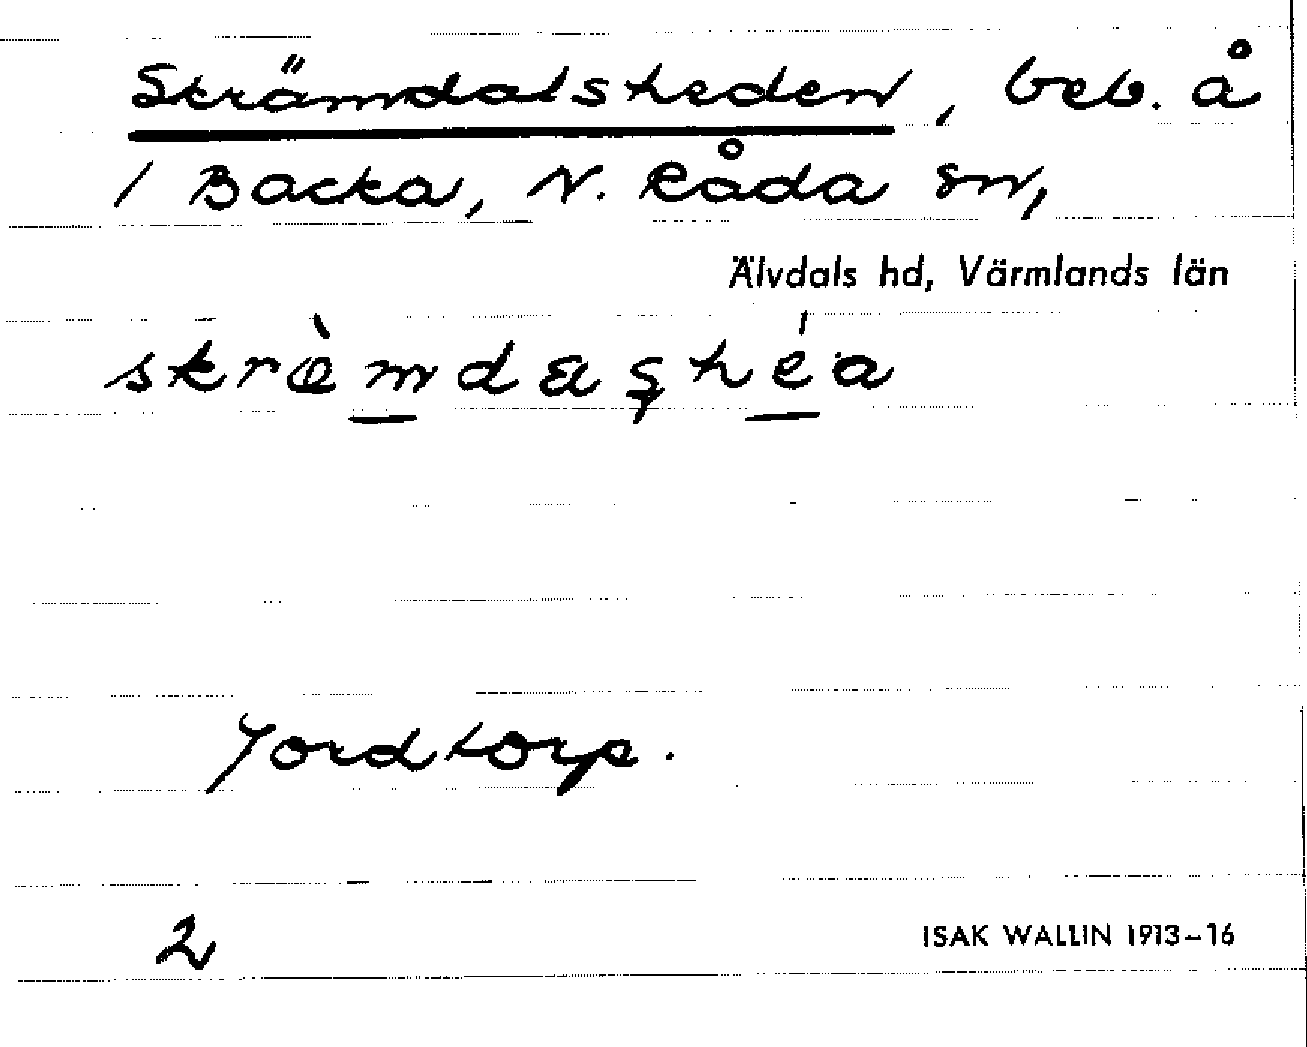 Skrämdalsheden, beb. å
1 Backa, N. Råda sn,
Älvdals hd, Värmlands län
skrèmdaşhéa
Jordtorp.
2
ISAK WALLIN 1913–16